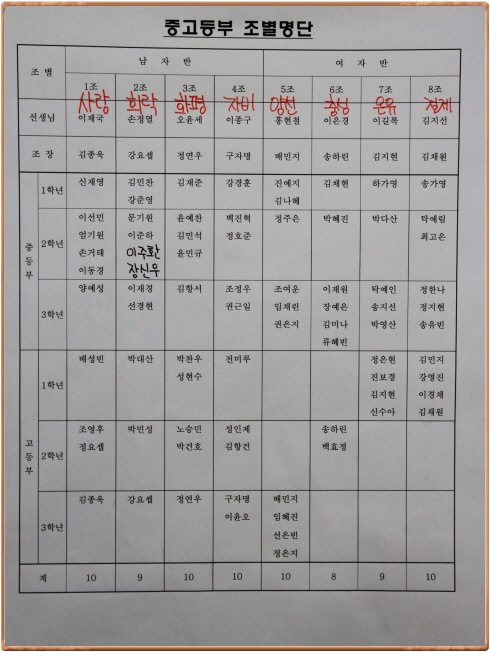 중고등부 조별명단
조별 남자반 여자반
1조 2조 3조 4조 5조 6조 7조 8조
사랑 희락 화평 자비 양선 충성 온유 절제
선생님 이제국 손정열 오윤세 이종구 홍현철 이은경 이길록 김지선
조장 김종욱 강요셉 정연우 구자명 배민지 송하린 김지현 김채원
중등부
1학년 신재영 김민찬 김재준 강경훈 진예지 김채현 하가영 송가영
강준영 김나혜
2학년 이선민 문기원 윤예찬 백진혁 정주은 박혜진 박다산 탁예림
염기원 이준하 김민석 정호준 최고은
손거태 이주환 윤민규
이동경 장신우
3학년 양예성 이재경 김항서 조정우 조여운 이재원 탁예인 정한나
선경현 권근일 임채린 장예은 송지선 정지현
권은지 김미나 박영산 송유빈
류혜빈
고등부
1학년 배성민 박대산 박찬우 전미루 정은현 김민지
성현수 진보경 강영진
김지현 이경채
신수아 김채원
2학년 조영후 박민성 노승민 성인제 송하린
정요셉 박건호 김항건 백효정
3학년 김종욱 강요셉 정연우 구자명 배민지
이윤오 임혜진
선은빈
정은지
계 10 9 10 10 10 8 9 10